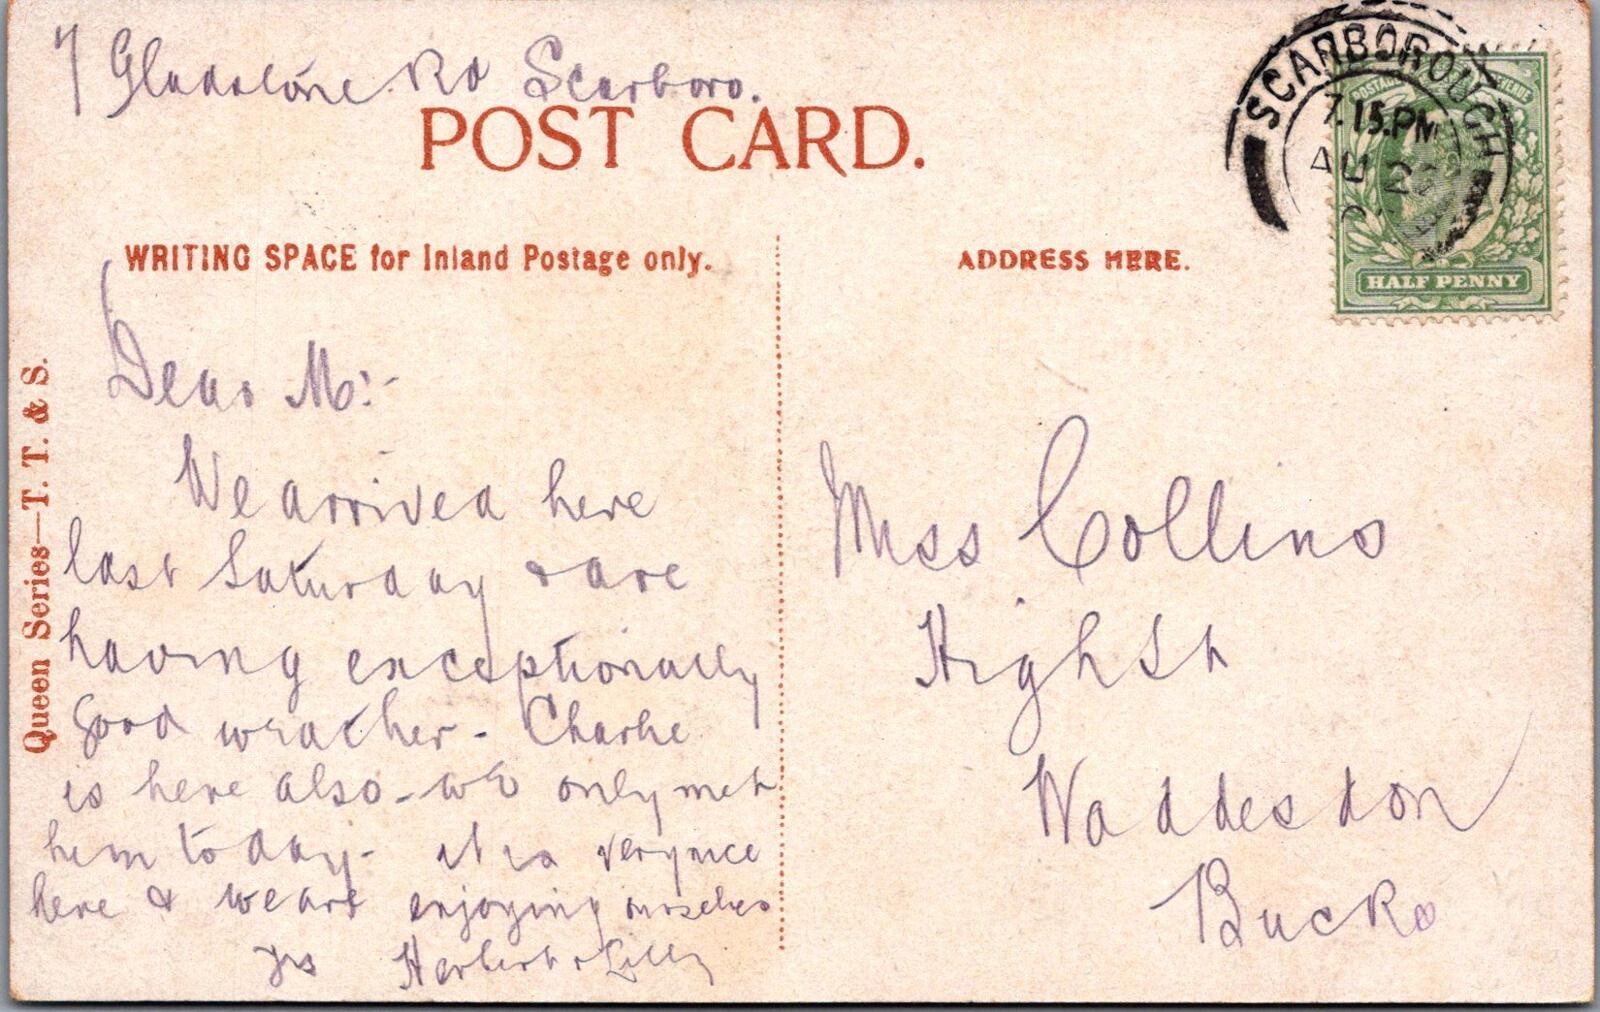 7 Gladstone Rd Scarboro.
POST CARD.
WRITING SPACE for Inland Postage only.
ADDRESS HERE.
SCARBOROUGH
7.15.PM
AU 2
POSTAGE REVENUE
HALF PENNY
Queen Series—T. T. & S.
Dear M:-
We arrived here
last Saturday & are
having exceptionally
good weather - Charlie
is here also - we only met
him today - it is very nice
here & we are enjoying ourselves
yrs Herbert & Lilly
Miss Collins
High St
Waddesdon
Bucks